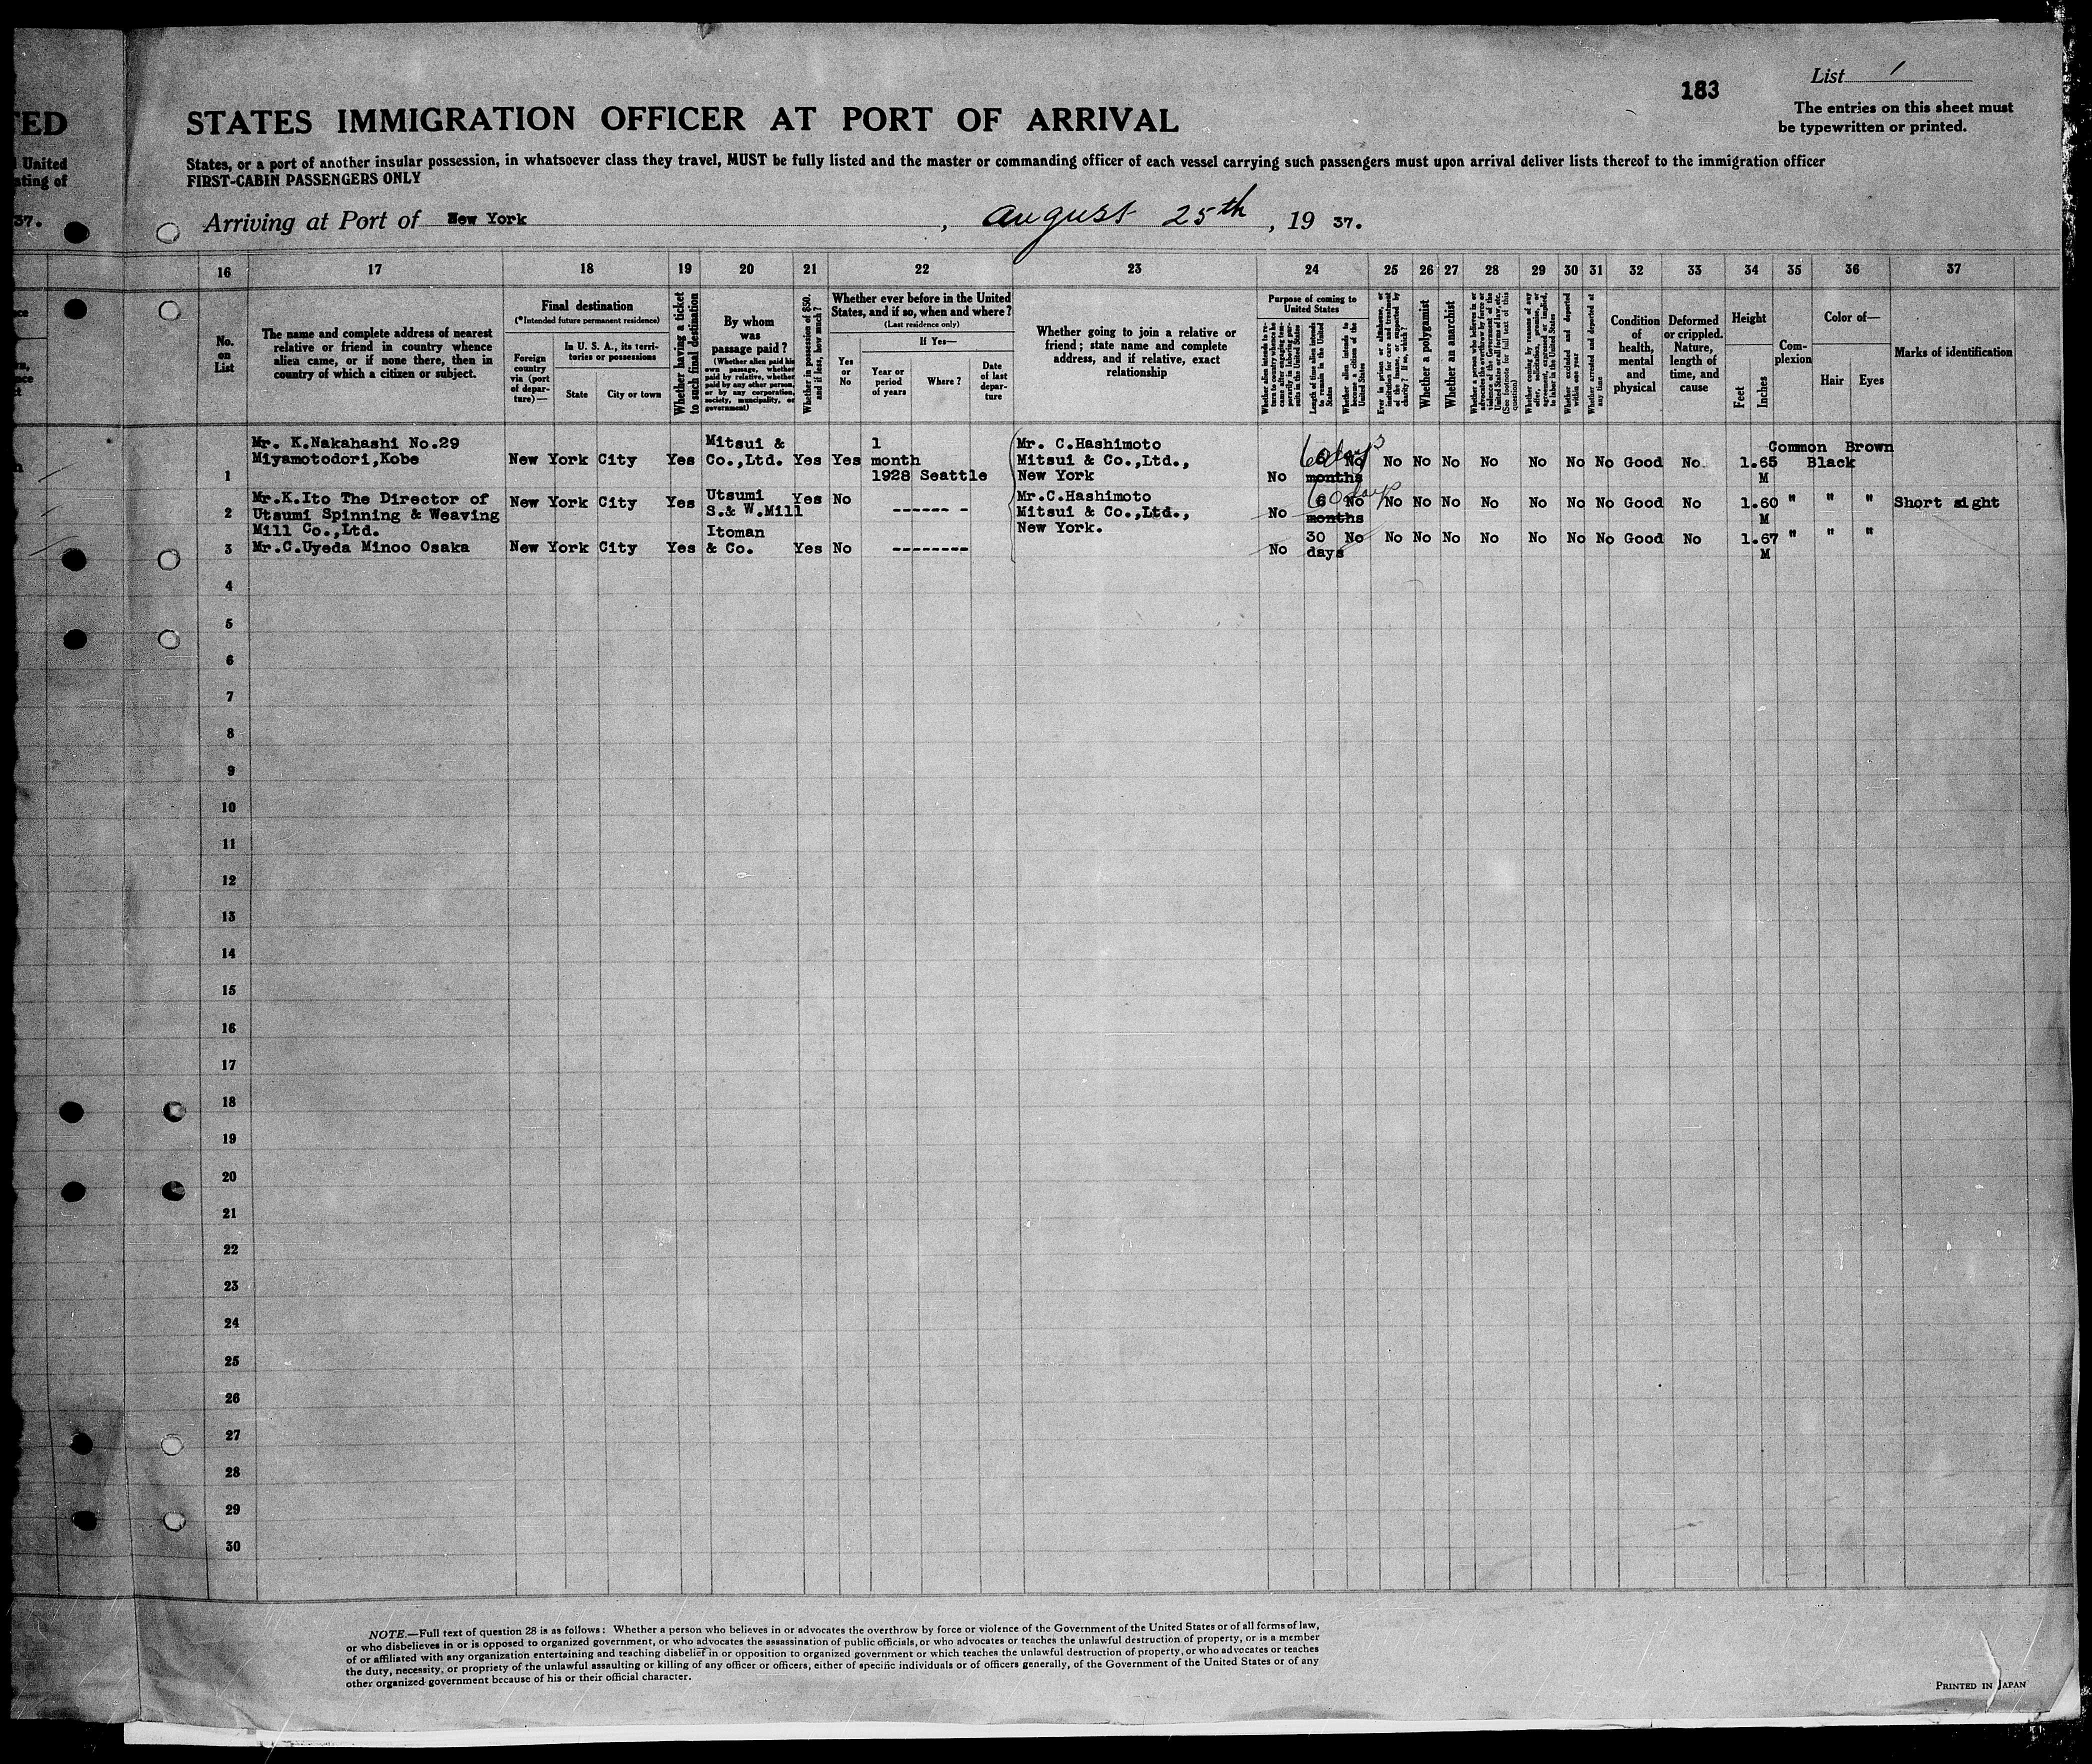 TED
United
ating of
37.
183
List 1
The entries on this sheet must
be typewritten or printed.
STATES IMMIGRATION OFFICER AT PORT OF ARRIVAL
States, or a port of another insular possession, in whatsoever class they travel, MUST be fully listed and the master or commanding officer of each vessel carrying such passengers must upon arrival deliver lists thereof to the immigration officer
FIRST-CABIN PASSENGERS ONLY
Arriving at Port of New York, August 25th, 19 37.
16 17 18 19 20 21 22 23 24 25 26 27 28 29 30 31 32 33 34 35 36 37
No.
on
List
The name and complete address of nearest
relative or friend in country whence
alien came, or if none there, then in
country of which a citizen or subject.
Final destination
(*Intended future permanent residence)
Foreign
country
via (port
of depar-
ture)—
In U. S. A., its terri-
tories or possessions
State
City or town
Whether having a ticket
to such final destination
By whom
was
passage paid?
(Whether alien paid his
own passage, whether
paid by relative, whether
paid by any other person,
or by any corporation,
society, municipality, or
government)
Whether in possession of $50,
and if less, how much?
Whether ever before in the United
States, and if so, when and where?
(Last residence only)
Yes
or
No
If Yes—
Year or
period
of years
Where?
Date
of last
depar-
ture
Whether going to join a relative or
friend; state name and complete
address, and if relative, exact
relationship
Purpose of coming to
United States
Length of time alien intends
to remain in the United
States
Whether alien intends to
become a citizen of the
United States
Ever in prison or almshouse, or
institution for care and treatment
of the insane, or supported by
charity? If so, which?
Whether a polygamist
Whether an anarchist
Whether coming by reason of any
offer, solicitation, promise, or
agreement, expressed or implied,
to labor in the United States
Whether excluded and deported
within one year
Whether arrested and deported at
any time
Condition
of
health,
mental
and
physical
Deformed
or crippled.
Nature,
length of
time, and
cause
Height
Feet
Inches
Com-
plexion
Color of—
Hair
Eyes
Marks of identification
1
Mr. K.Nakahashi No.29
Miyamotodori,Kobe
New York City
Yes
Mitsui &
Co.,Ltd.
Yes
Yes
1
month
1928 Seattle
Mr. C.Hashimoto
Mitsui & Co.,Ltd.,
New York
No
60 days
months
No
No No No No No No No Good No
1.65
M
Common Brown
Black
2
Mr.K.Ito The Director of
Utsumi Spinning & Weaving
Mill Co.,Ltd.
New York City
Yes
Utsumi
S.& W.Mill
Yes
No
------ -
Mr.C.Hashimoto
Mitsui & Co.,Ltd.,
New York.
No
60 days
6
months
No
No No No No No No No Good No
1.60
M
" " "
Short sight
3
Mr.C.Uyeda Minoo Osaka
New York City
Yes
Itoman
& Co.
Yes
No
--------
No
30
days
No
No No No No No No No Good No
1.67
M
" " "
4
5
6
7
8
9
10
11
12
13
14
15
16
17
18
19
20
21
22
23
24
25
26
27
28
29
30
NOTE.—Full text of question 28 is as follows: Whether a person who believes in or advocates the overthrow by force or violence of the Government of the United States or of all forms of law,
or who disbelieves in or is opposed to organized government, or who advocates the assassination of public officials, or who advocates or teaches the unlawful destruction of property, or is a member
of or affiliated with any organization entertaining and teaching disbelief in or opposition to organized government or which teaches the unlawful destruction of property, or who advocates or teaches
the duty, necessity, or propriety of the unlawful assaulting or killing of any officer or officers, either of specific individuals or of officers generally, of the Government of the United States or of any
other organized government because of his or their official character.
PRINTED IN JAPAN